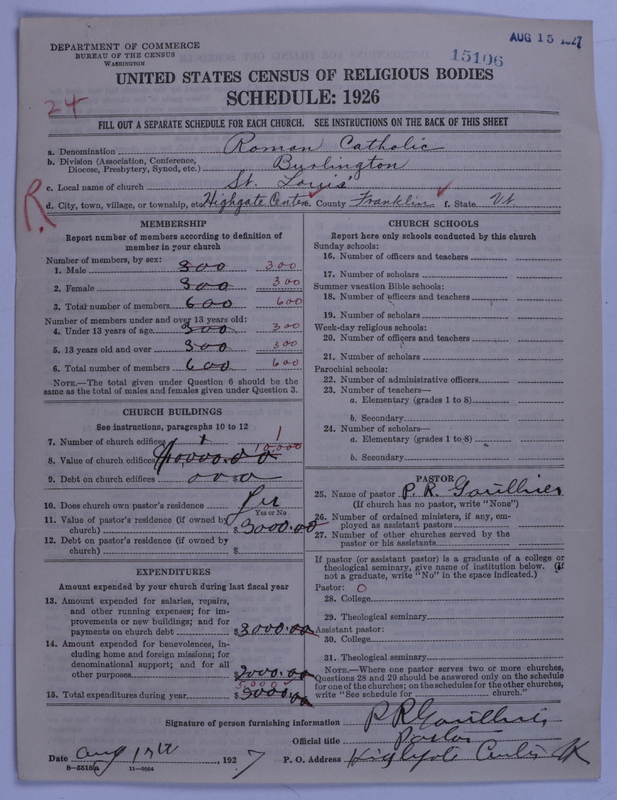 DEPARTMENT OF COMMERCE
BUREAU OF THE CENSUS
WASHINGTON
AUG 15 1927
15106
UNITED STATES CENSUS OF RELIGIOUS BODIES
SCHEDULE: 1926
24
FILL OUT A SEPARATE SCHEDULE FOR EACH CHURCH. SEE INSTRUCTIONS ON THE BACK OF THIS SHEET
a. Denomination Roman Catholic
b. Division (Association, Conference, Diocese, Presbytery, Synod, etc.) Burlington
c. Local name of church St. Louis'
R.
d. City, town, village, or township, etc. Highgate Center e. County Franklin f. State Vt
MEMBERSHIP
Report number of members according to definition of
member in your church
Number of members, by sex:
1. Male 300 300
2. Female 300 300
3. Total number of members 600 600
Number of members under and over 13 years old:
4. Under 13 years of age 300 300
5. 13 years old and over 300 300
6. Total number of members 600 600
NOTE.—The total given under Question 6 should be
same as the total of males and females given under Question 3.
CHURCH BUILDINGS
See instructions, paragraphs 10 to 12
7. Number of church edifices 1 1
8. Value of church edifices $10000.00 10,000
9. Debt on church edifices 000
10. Does church own pastor's residence Yes
Yes or No
11. Value of pastor's residence (if owned by
church) $3000.00
12. Debt on pastor's residence (if owned by
church) $
EXPENDITURES
Amount expended by your church during last fiscal year
13. Amount expended for salaries, repairs,
and other running expenses; for im-
provements or new buildings; and for
payments on church debt $3000.00
14. Amount expended for benevolences, in-
cluding home and foreign missions; for
denominational support; and for all
other purposes $2000.00
5000
15. Total expenditures during year $5000.00
CHURCH SCHOOLS
Report here only schools conducted by this church
Sunday schools:
16. Number of officers and teachers
17. Number of scholars
Summer vacation Bible schools:
18. Number of officers and teachers
19. Number of scholars
Week-day religious schools:
20. Number of officers and teachers
21. Number of scholars
Parochial schools:
22. Number of administrative officers
23. Number of teachers—
a. Elementary (grades 1 to 8)
b. Secondary
24. Number of scholars—
a. Elementary (grades 1 to 8)
b. Secondary
PASTOR
25. Name of pastor P. R. Gaulthier
(If church has no pastor, write "None")
26. Number of ordained ministers, if any, em-
ployed as assistant pastors
27. Number of other churches served by the
pastor or his assistants
If pastor (or assistant pastor) is a graduate of a college or
theological seminary, give name of institution below. (If
not a graduate, write "No" in the space indicated.)
Pastor: O
28. College
29. Theological seminary
Assistant pastor:
30. College
31. Theological seminary
NOTE.—Where one pastor serves two or more churches,
Questions 28 and 29 should be answered only on the schedule
for one of the churches; on the schedules for the other churches,
write "See schedule for church."
Signature of person furnishing information P R Gaulthier
Official title Pastor
Date Aug 12th 1927 P. O. Address Highgate Center Vt
8-5518a 11-9084